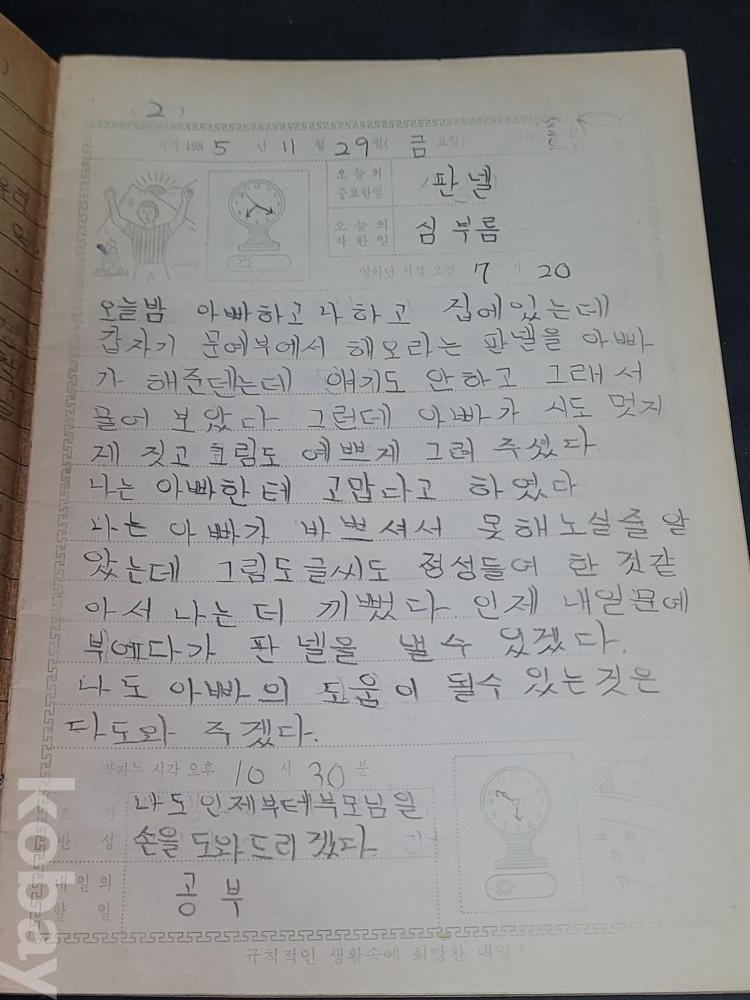 (2)
198 5 년 11 월 29 일( 금 요일)
오늘의
중요한일
판넬
오늘의
착한일
심부름
일어난 시각 오전 7 시 20
오늘밤 아빠하고 나하고 집에있는데
갑자기 문예부에서 해오라는 판넬을 아빠
가 해준덴는데 얘기도 안하고 그래서
물어 보았다 그런데 아빠가 시도 멋지
게 짓고 그림도 예쁘게 그려 주셨다
나는 아빠한테 고맙다고 하였다
나는 아빠가 바쁘셔서 못해노실줄 알
았는데 그림도글씨도 정성들여 한 것같
아서 나는 더 기뻤다. 인제 내일문예
부에다가 판넬을 낼수 있겠다.
나도 아빠의 도움이 될수 있는것은
다도와 주겠다.
잠자는 시각 오후 10 시 30 분
반 성
나도인제부터부모님일
손을 도와드리겠다.
내일의
할 일
공부
규칙적인 생활속에 희망찬 내일!
kobay